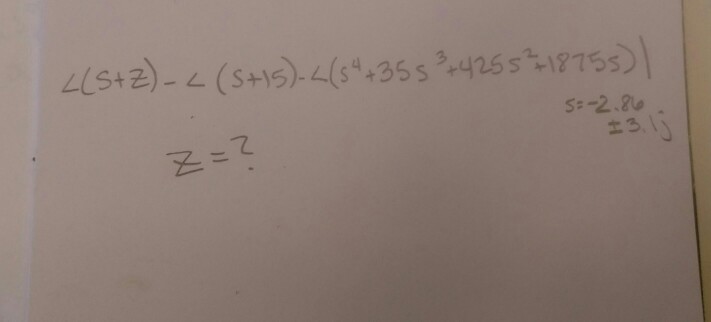 ∠(S+Z) - ∠(S+15) - ∠(s⁴+35s³+425s²+1875s)|
s=-2.86
±3.1j
Z=?